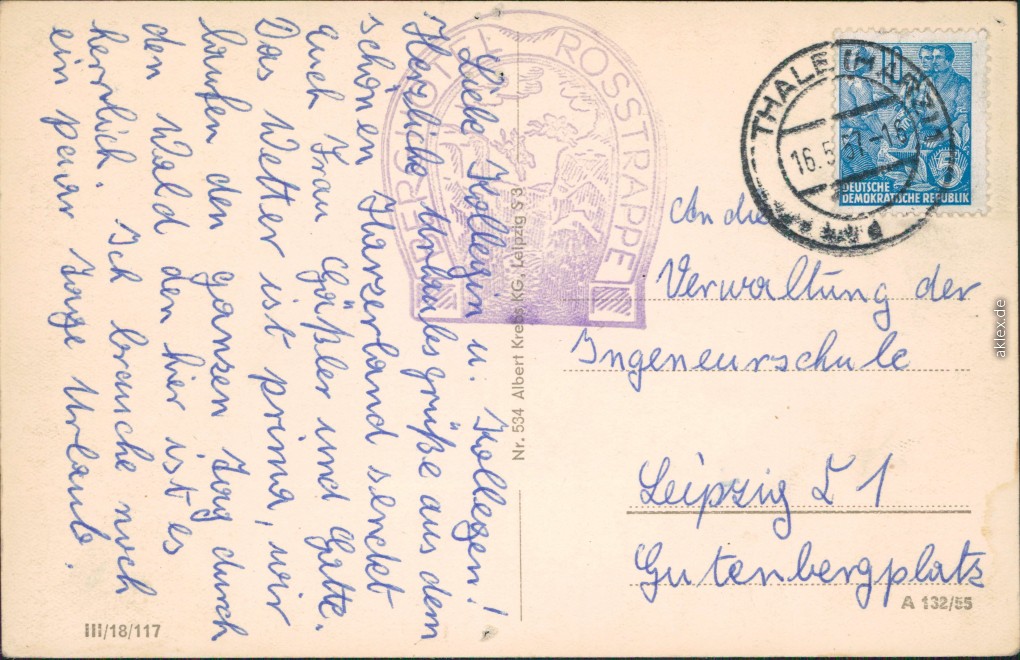 Liebe Kollegin u. Kollegen!
Herzliche Urlaubsgrüße aus dem
schönen Harzerland sendet
Euch Frau Gäßler und Gatte.
Das Wetter ist prima, wir
laufen den ganzen Tag durch
den Wald den hier ist es
herrlich. Ich brauche noch
ein paar Tage Urlaub.
III/18/117
BERGHOTEL ROSSTRAPPE
Nr. 534 Albert Krebs, KG, Leipzig S 3
THALE (HARZ)
16.5.57-18
10
DEUTSCHE
DEMOKRATISCHE REPUBLIK
An die
Verwaltung der
Ingeneurschule
Leipzig C 1
Gutenbergplatz
A 132/55
aklex.de